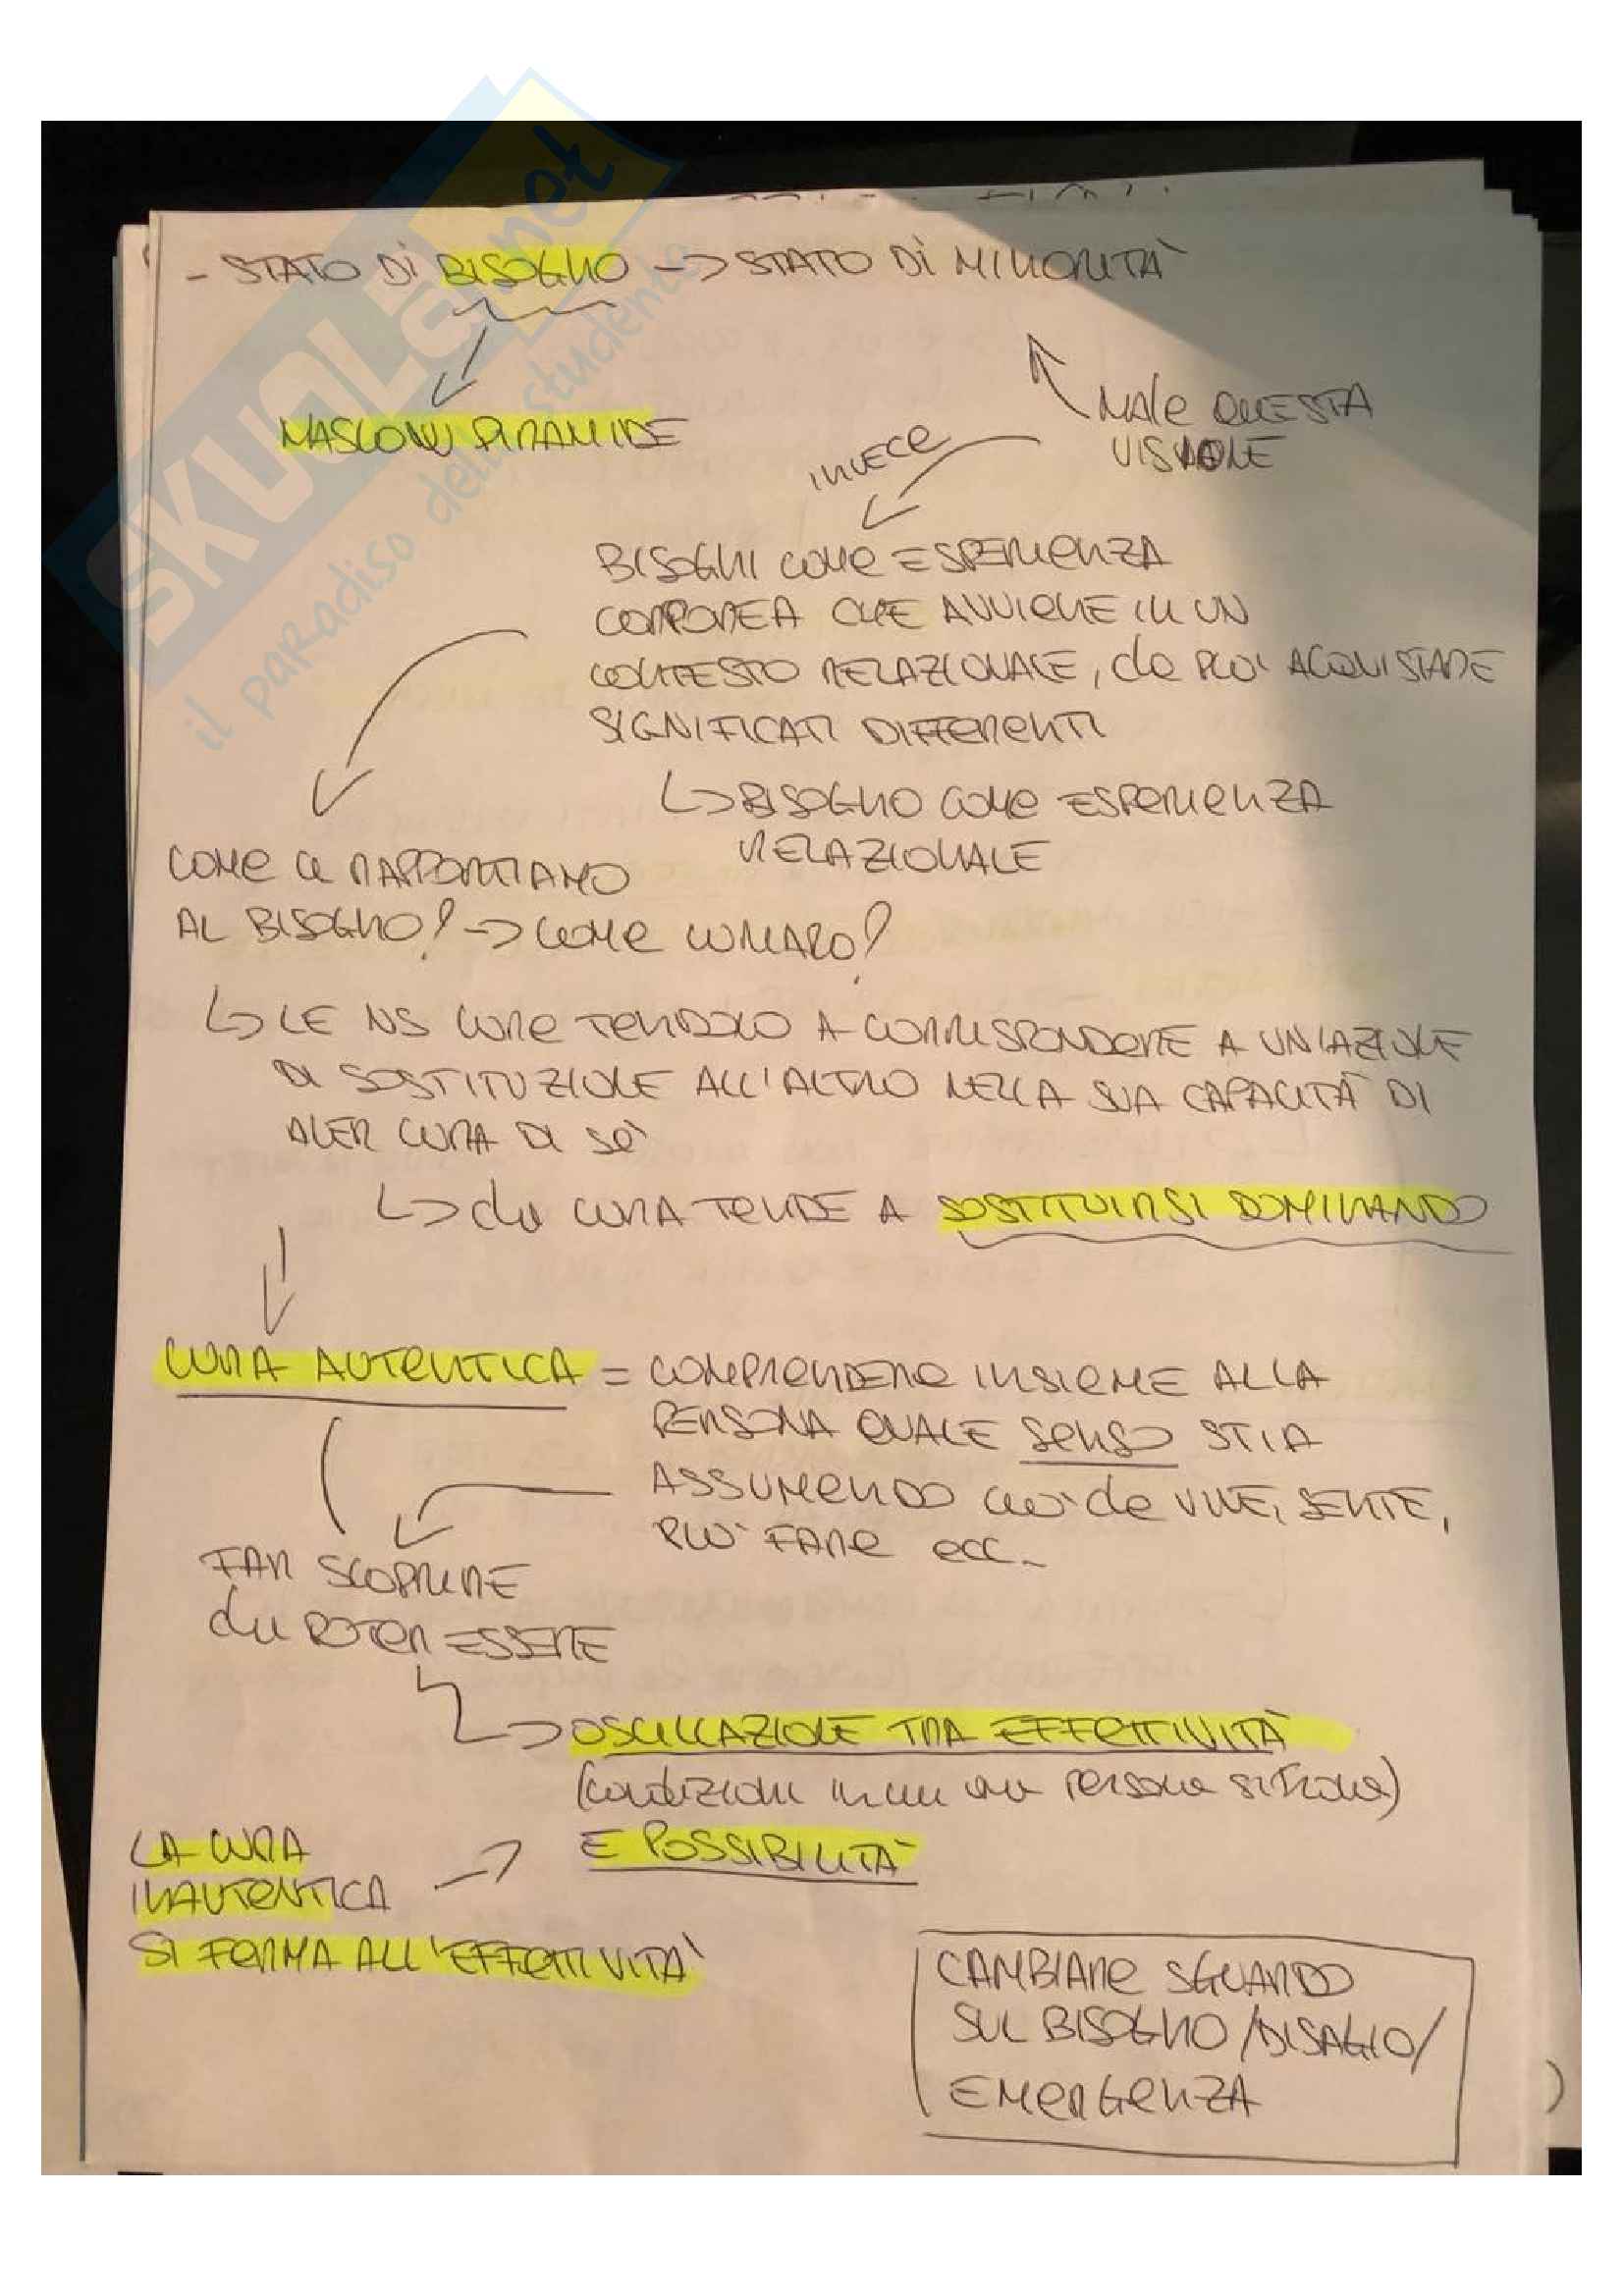 - STATO DI BISOGNO -> STATO DI MINORITÀ
MASLOW PIRAMIDE
MALE QUESTA
VISIONE
INVECE
BISOGNI COME ESPERIENZA
CORPOREA CHE AVVIENE IN UN
CONTESTO RELAZIONALE, che PUÒ ACQUISTARE
SIGNIFICATI DIFFERENTI
↳ BISOGNO COME ESPERIENZA
RELAZIONALE
COME CI RAPPORTIAMO
AL BISOGNO? -> COME CURARLO?
↳ LE NS CURE TENDONO A CORRISPONDERE A UN'AZIONE
DI SOSTITUZIONE ALL'ALTRO NELLA SUA CAPACITÀ DI
AVER CURA DI SÈ
↳ chi CURA TENDE A SOSTITUIRSI DOMINANDO
CURA AUTENTICA = COMPRENDERE INSIEME ALLA
PERSONA QUALE SENSO STIA
ASSUMENDO ciò che VIVE, SENTE,
PUÒ FARE ecc..
FAR SCOPRIRE
chi POTER ESSERE
↳ OSCILLAZIONE TRA EFFETTIVITÀ
(condizioni in cui una persona si trova)
E POSSIBILITÀ
LA CURA
INAUTENTICA
SI FERMA ALL'EFFETTIVITÀ
CAMBIARE SGUARDO
SUL BISOGNO/DISAGIO/
EMERGENZA
SKUOLA.net
il paradiso dello studente